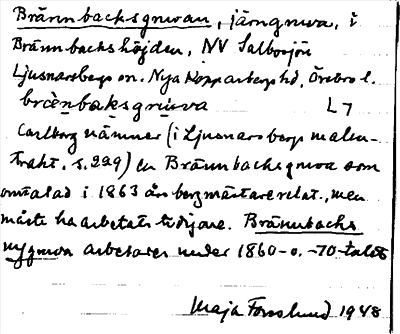 Brännbacksgruvan, järngruva, i
Brännbackshöjden, NV Salbosjön
Ljusnarsbergs sn. Nya Kopparbergs hd, Örebro l.
brän̄baksgrūva L 7
Carlborg nämner (i Ljusnarsbergs malm-
trakt, s. 299) en Brännbacksgruva som
omtalad i 1863 års bergmästarerelat., men
måste ha arbetats tidigare. Brännbacks
nygruva arbetades under 1860- o. -70-talet
Maja Forsslund 1948